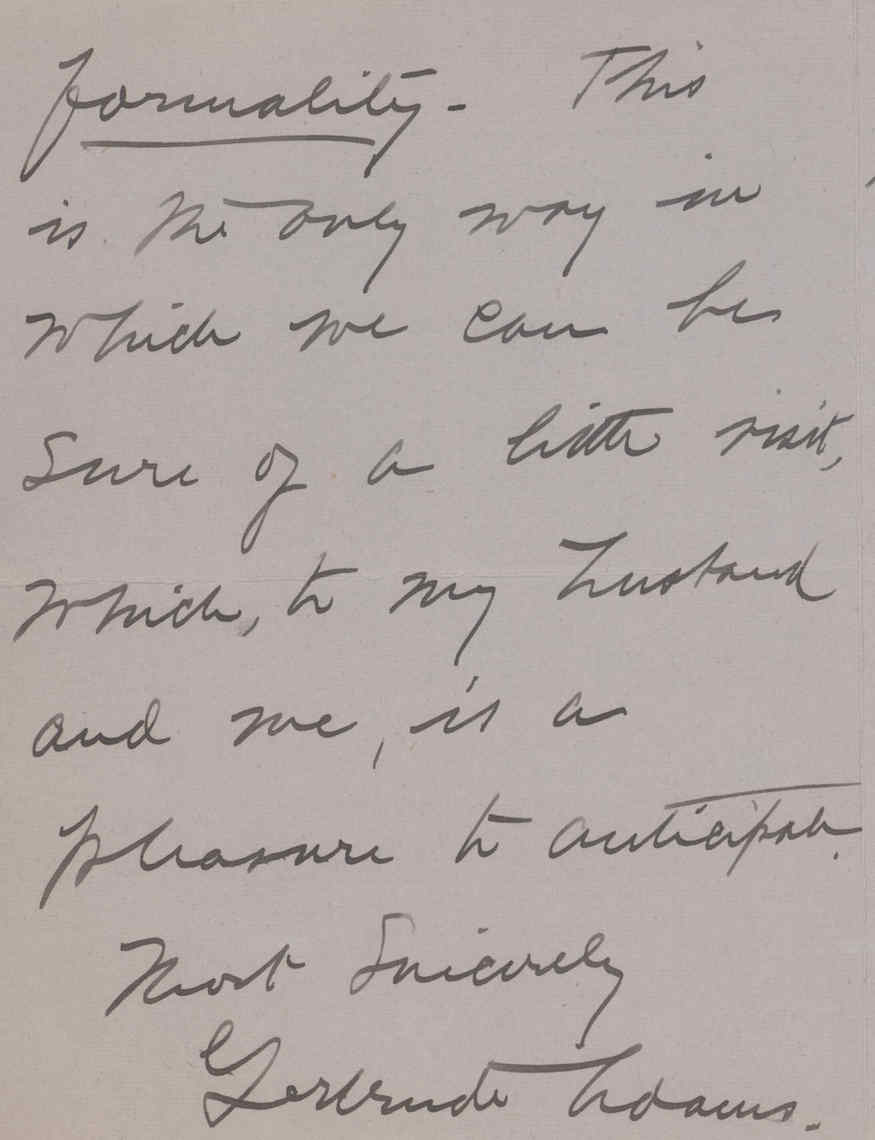 formality - This
is the only way in
which we can be
sure of a little visit,
which, to my husband
and me, is a
pleasure to anticipate.
Most Sincerely
Gertrude Adams.